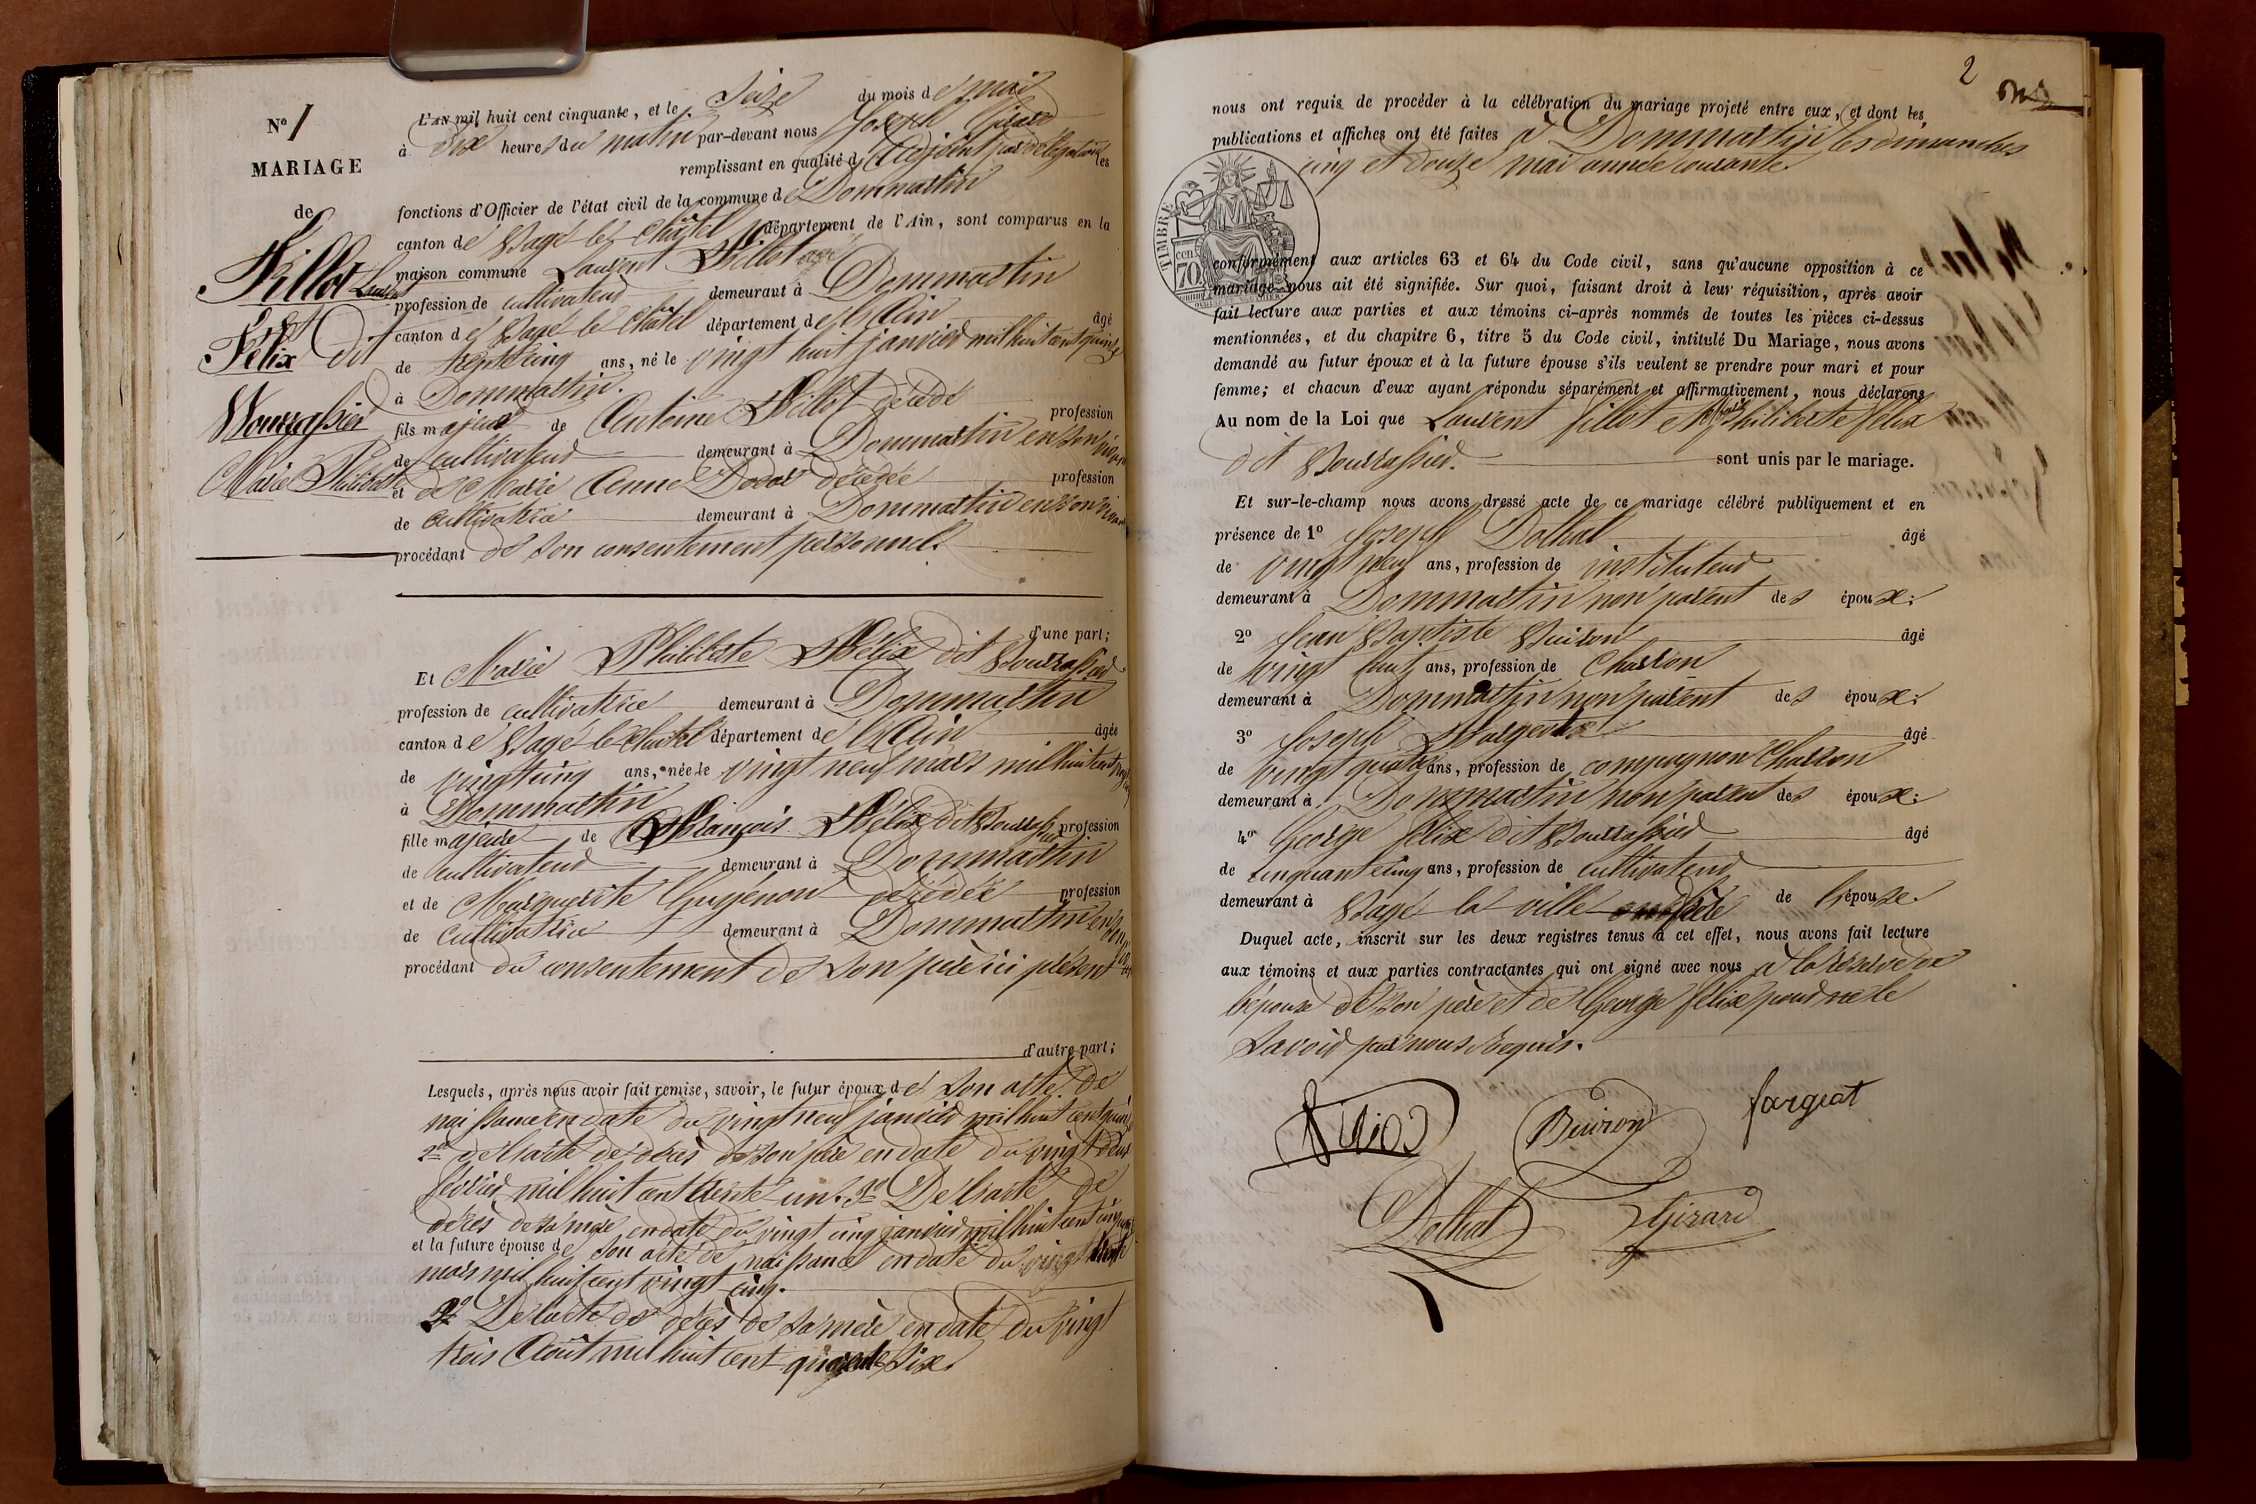 N° 1
MARIAGE
de
Fillot Laurent
et
Félix dit
Bourrassier
Marie Philiberte
L'AN mil huit cent cinquante, et le Seize du mois de mai
à dix heures du matin par-devant nous Joseph Girard
remplissant en qualité d'adjoint par délégation les
fonctions d'Officier de l'état civil de la commune de Dommartin
canton de Bagé le Châtel département de l'Ain, sont comparus en la
maison commune Laurent Fillot
profession de cultivateur demeurant à Dommartin
canton de Bagé le Châtel département de l'Ain âgé
de trente cinq ans, né le vingt huit janvier mil huit cent quinze
à Dommartin.
fils majeur de Antoine Fillot décédé profession
de cultivateur demeurant à Dommartin en son vivant
et de Marie Anne décédée profession
de cultivatrice demeurant à Dommartin en son vivant
procédant de son consentement personnel.
d'une part;
Et Marie Philiberte Félix dit Bourrassier
profession de cultivatrice demeurant à Dommartin
canton de Bagé le Châtel département de l'Ain âgée
de vingt cinq ans, née le vingt neuf mars mil huit cent vingt cinq
à Dommartin
fille majeure de François Félix dit Bourrassier profession
de cultivateur demeurant à Dommartin
et de Marguerite Guyenon décédée profession
de cultivatrice demeurant à Dommartin en son vivant
procédant du consentement de son père ici présent
d'autre part;
Lesquels, après nous avoir fait remise, savoir, le futur époux de son acte de
naissance en date du vingt neuf janvier mil huit cent quinze
2° de l'acte de décès de son père en date du vingt deux
février mil huit cent trente un. 3° De l'acte de
décès de sa mère en date du vingt cinq janvier mil huit cent cinquante
et la future épouse de son acte de naissance en date du vingt
mars mil huit cent vingt cinq.
2° De l'acte de décès de sa mère en date du vingt
trois Août mil huit cent quarante six.
2
nous ont requis de procéder à la célébration du mariage projeté entre eux, et dont les
publications et affiches ont été faites à Dommartin les dimanches
cinq et douze mai année courante.
TIMBRE
70 cen
conformément aux articles 63 et 64 du Code civil, sans qu'aucune opposition à ce
mariage nous ait été signifiée. Sur quoi, faisant droit à leur réquisition, après avoir
fait lecture aux parties et aux témoins ci-après nommés de toutes les pièces ci-dessus
mentionnées, et du chapitre 6, titre 5 du Code civil, intitulé Du Mariage, nous avons
demandé au futur époux et à la future épouse s'ils veulent se prendre pour mari et pour
femme; et chacun d'eux ayant répondu séparément et affirmativement, nous déclarons
Au nom de la Loi que Laurent fillot et Marie Philiberte félix
dit Bourrassier. sont unis par le mariage.
Et sur-le-champ nous avons dressé acte de ce mariage célébré publiquement et en
présence de 1° Joseph Dothal âgé
de vingt neuf ans, profession de instituteur
demeurant à Dommartin non parent des époux;
2° Jean Baptiste Buiron âgé
de vingt huit ans, profession de Charron
demeurant à Dommartin non parent des époux;
3° Joseph fargeat âgé
de vingt quatre ans, profession de compagnon Charron
demeurant à Dommartin non parent des époux;
4° George félix dit Bourrassier âgé
de cinquante cinq ans, profession de cultivateur
demeurant à Bagé la ville oncle de l'épouse.
Duquel acte, inscrit sur les deux registres tenus à cet effet, nous avons fait lecture
aux témoins et aux parties contractantes qui ont signé avec nous à la réserve de
l'épouse de son père et de George félix pour ne le
savoir par nous Requis.
Buiron
fargeat
Dothal
Girard